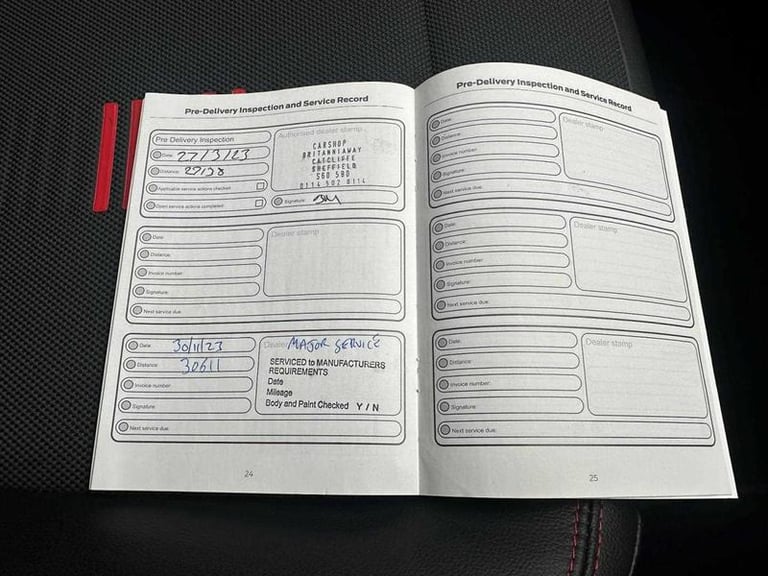 Pre-Delivery Inspection and Service Record
Pre Delivery Inspection
Date: 27/3/23
Distance:
Applicable service actions checked
Open service actions completed
Authorised dealer stamp
CARSHOP
BRITANNIAWAY
CATCLIFFE
SHEFFIELD
S60 5BD
0114 502 0114
Signature:
Date:
Distance:
Invoice number:
Signature:
Next service due:
Dealer stamp
Date: 30/11/23
Distance: 30611
Invoice number:
Signature:
Next service due:
Dealer MAJOR SERVICE
SERVICED to MANUFACTURERS
REQUIREMENTS
Date
Mileage
Body and Paint Checked Y / N
24
Pre-Delivery Inspection and Service Record
Date:
Distance:
Invoice number:
Signature:
Next service due:
Dealer stamp
Date:
Distance:
Invoice number:
Signature:
Next service due:
Dealer stamp
Date:
Distance:
Invoice number:
Signature:
Next service due:
Dealer stamp
25